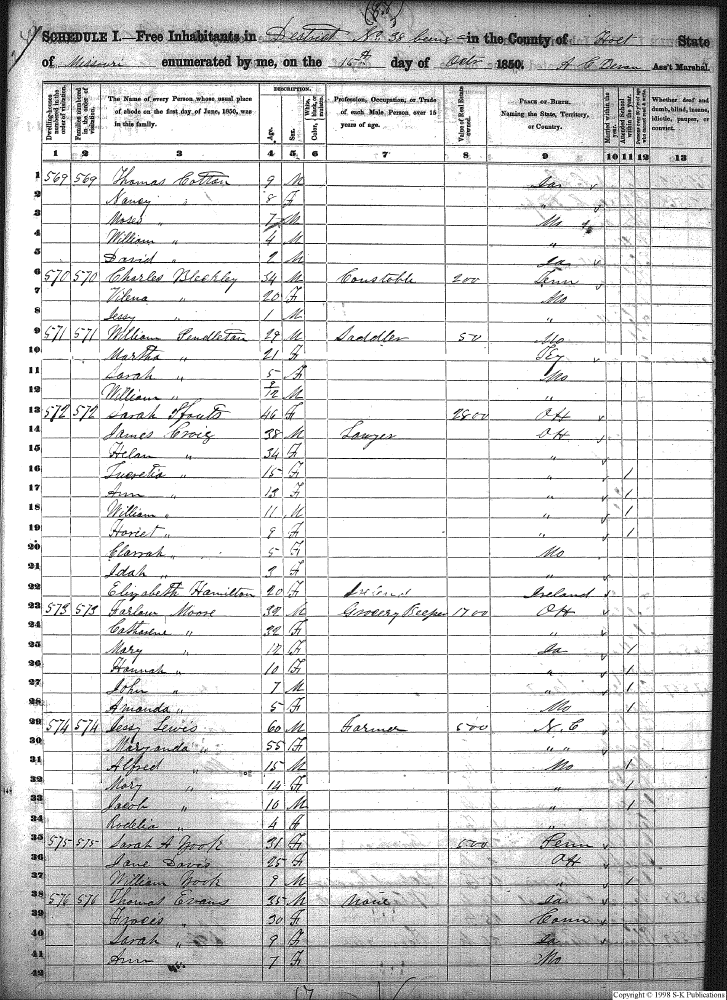 SCHEDULE I.—Free Inhabitants in District No 38 being in the County of Holt State
of Missouri enumerated by me, on the 16th day of Octo 1850. Ass't Marshal.
Dwelling-houses numbered in the order of visitation.
Families numbered in the order of visitation.
The Name of every Person whose usual place of abode on the first day of June, 1850, was in this family.
DESCRIPTION.
Age.
Sex.
Color, White, black, or mulatto.
Profession, Occupation, or Trade of each Male Person over 15 years of age.
Value of Real Estate owned.
PLACE OF BIRTH. Naming the State, Territory, or Country.
Married within the year.
Attended School within the year.
Whether deaf and dumb, blind, insane, idiotic, pauper, or convict.
1 2 3 4 5 6 7 8 9 10 11 12 13
1 569 569 Thomas Cotton 9 M Ia
2 Nancy " 8 F "
3 Moses " 7 M Mo
4 William " 4 M "
5 David " 2 M Ia
6 570 570 Charles Bleckley 34 M Constable 200 Tenn
7 Vilena " 20 F Mo
8 Jessy " 1 M "
9 571 571 William Pendleton 29 M Saddler 50 Mo
10 Martha " 21 F Ky
11 Sarah " 5 F Mo
12 William " 2/12 M "
13 572 572 Sarah 46 F 2800 OH
14 James Croig 38 M Lawyer OH
15 Helan " 34 F "
16 Lucretia " 15 F " 1
17 Ann " 13 F " 1
18 William " 11 M " 1
19 Hariet " 9 F " 1
20 Clarrah " 5 F Mo
21 Idah " 2 F "
22 Elizabeth Hamilton 20 F Ireland Ireland
23 573 573 Farlow Moore 39 M Grocery Keeper 1700 OH
24 Catharine " 32 F "
25 Mary " 12 F Ia 1
26 Hannah " 10 F " 1
27 John " 7 M " 1
28 Amanda " 5 F Mo 1
29 574 574 Jessy Lewis 60 M Farmer 500 N.C
30 Maryanda " 55 F " "
31 Alfred " 15 M Mo 1
32 Mary " 14 F " 1
33 Jacob " 10 M " 1
34 Rodelia " 4 F "
35 575 575 Sarah A Zook 31 F 600 Penn
36 Jane Davis 25 F OH
37 William Zook 9 M " 1
38 576 576 Thomas Evans 35 M None Ia
39 Fraces " 30 F Conn
40 Sarah " 9 F Ia
41 Ann " 7 F Mo
42
Copyright © 1998 S-K Publications